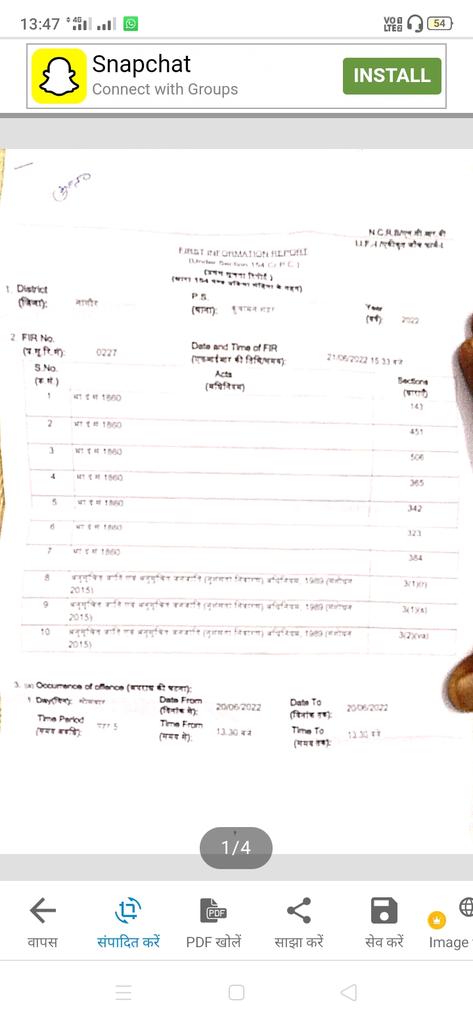 13:47
4G
VO LTE2
54
Snapchat
Connect with Groups
INSTALL
N.C.R.B/एन सी आर बी
I.I.F.-I/एकीकृत जाँच फार्म-I
FIRST INFORMATION REPORT
(Under Section 154 Cr.P.C.)
(प्रथम सूचना रिपोर्ट)
(धारा 154 दण्ड प्रक्रिया संहिता के तहत)
1. District P.S. Year
(जिला): नागौर (थाना): (वर्ष): 2022
2. FIR No. Date and Time of FIR
(प्र.सू.रि.सं): 0227 (एफआईआर की तिथि/समय): 21/06/2022 15:33 बजे
S.No. Acts Sections
(क्र.सं.) (अधिनियम) (धाराएँ)
1 भा दं सं 1860 143
2 भा दं सं 1860 451
3 भा दं सं 1860 506
4 भा दं सं 1860 365
5 भा दं सं 1860 342
6 भा दं सं 1860 323
7 भा दं सं 1860 384
8 अनुसूचित जाति एवं अनुसूचित जनजाति (नृशंसता निवारण) अधिनियम, 1989 (संशोधन 3(1)(r)
2015)
9 अनुसूचित जाति एवं अनुसूचित जनजाति (नृशंसता निवारण) अधिनियम, 1989 (संशोधन 3(1)(s)
2015)
10 अनुसूचित जाति एवं अनुसूचित जनजाति (नृशंसता निवारण) अधिनियम, 1989 (संशोधन 3(2)(va)
2015)
3. (a) Occurrence of offence (अपराध की घटना):
1. Day(दिन): सोमवार Date From 20/06/2022 Date To 20/06/2022
(दिनांक से): (दिनांक तक):
Time Period पहर 5 Time From 13:30 बजे Time To 13:30 बजे
(समय अवधि): (समय से): (समय तक):
1/4
वापस
संपादित करें
PDF
PDF खोलें
साझा करें
सेव करें
Image